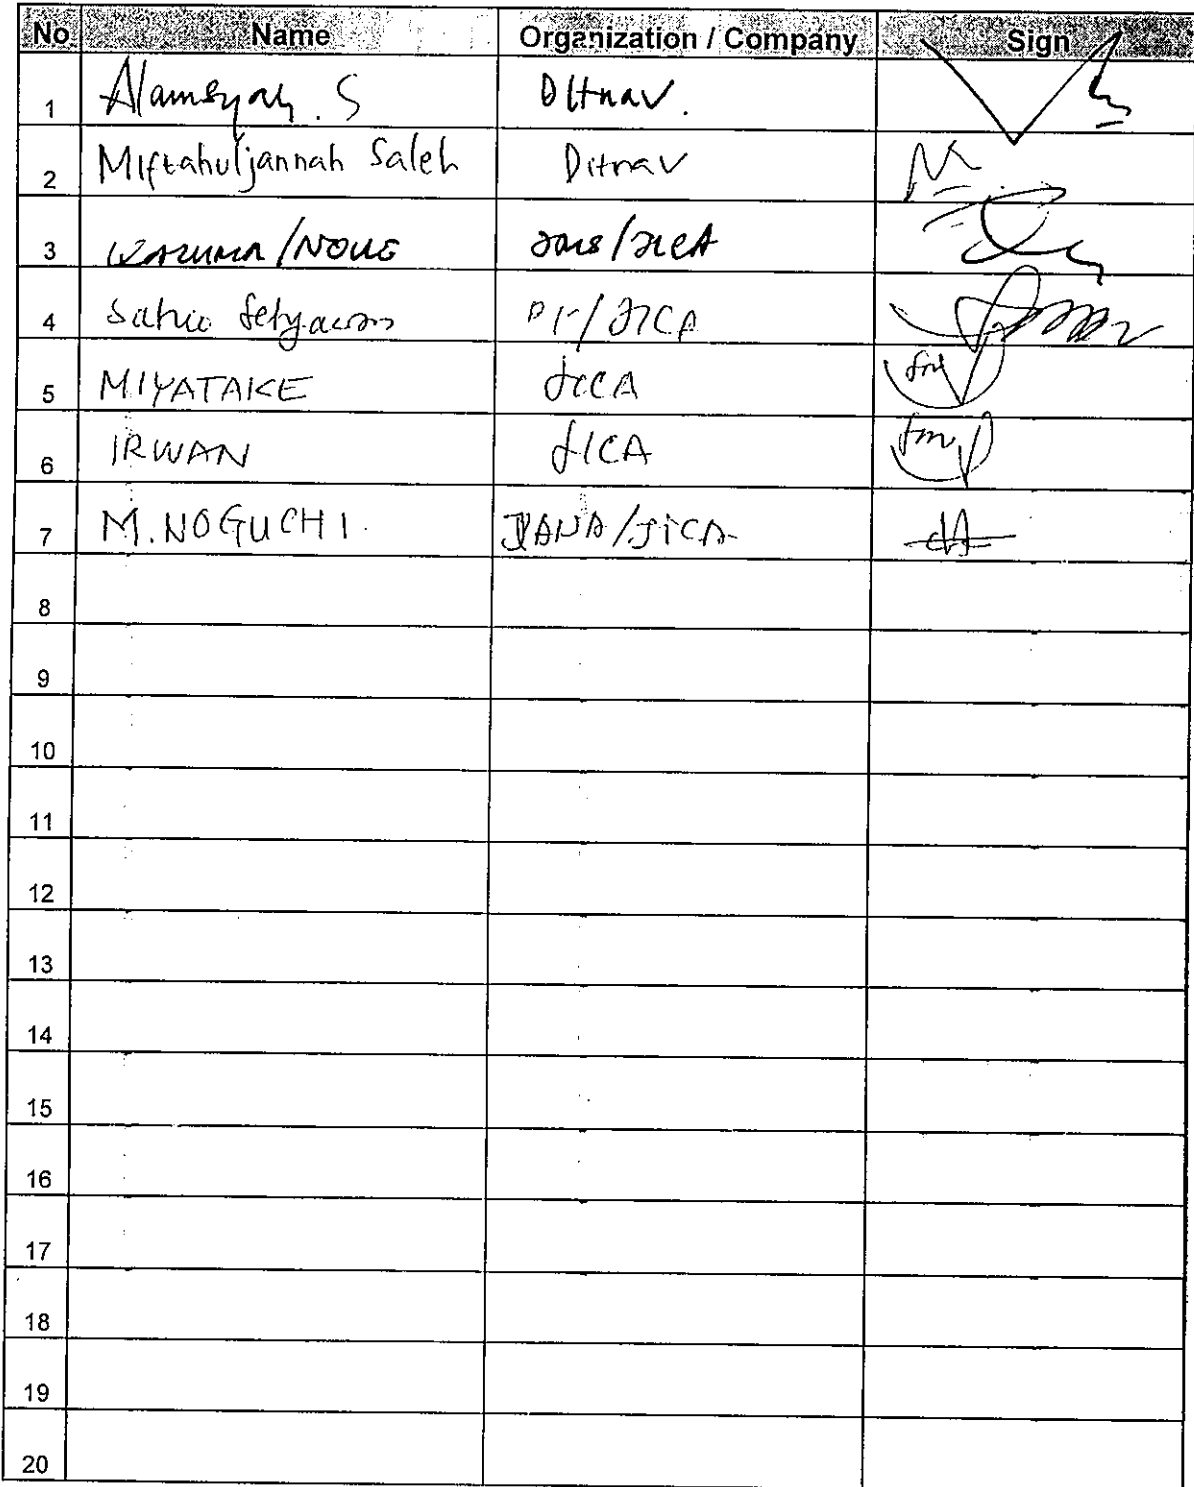 No Name Organization / Company Sign
1 Alamsyah. S Ditnav.
2 Miftahuljannah Saleh Ditnav
3 KAZUMA INOUE JICA
4 Satrio Setyawan /JICA
5 MIYATAKE JICA
6 IRWAN JICA
7 M. NOGUCHI. JANA/JICA
8
9
10
11
12
13
14
15
16
17
18
19
20